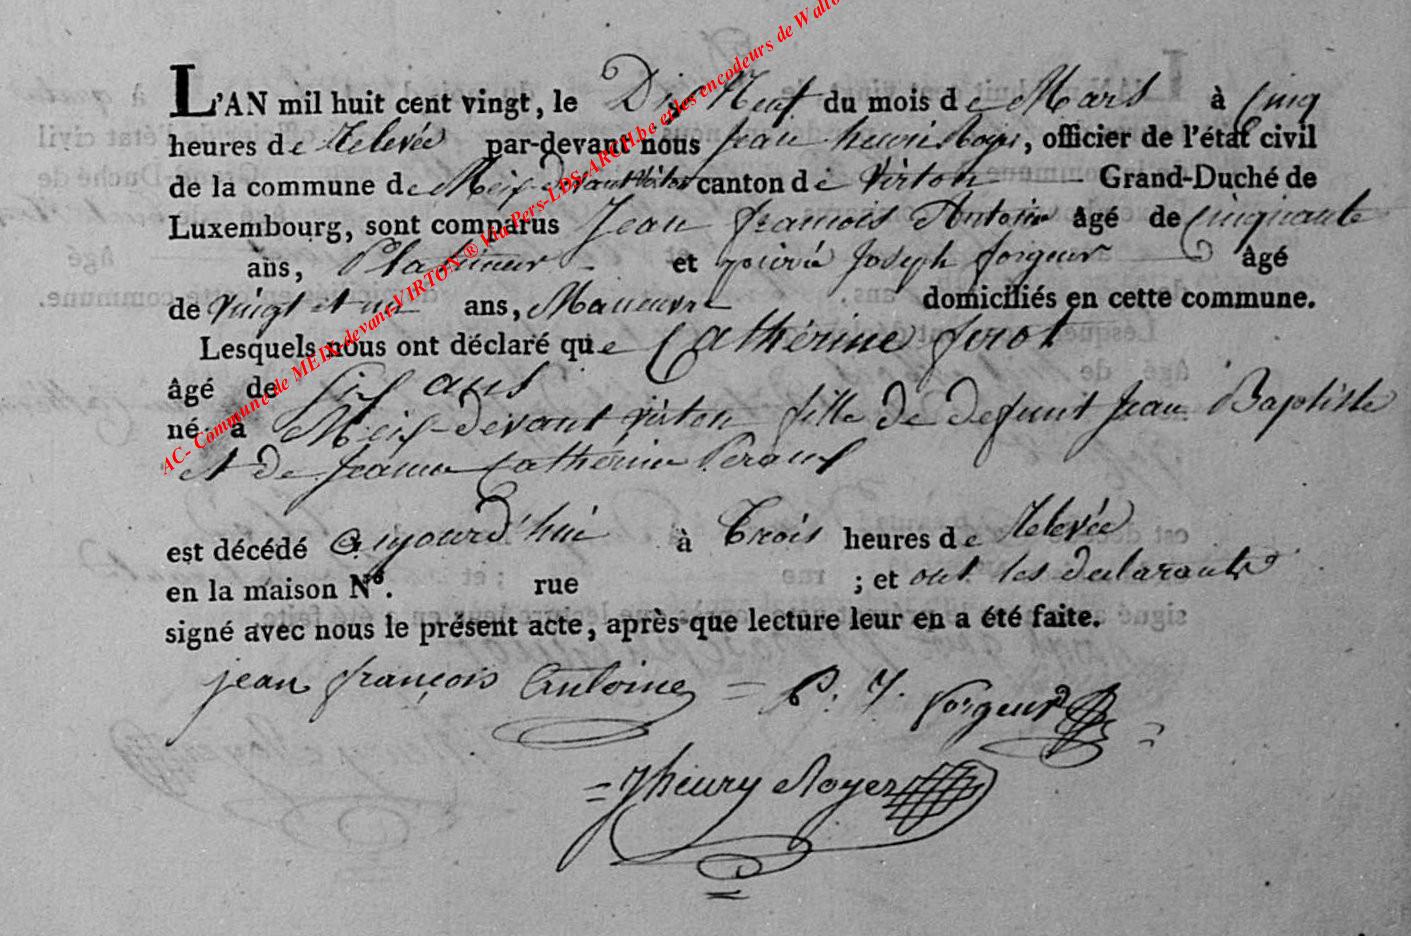 L'AN mil huit cent vingt, le Dix Neuf du mois de Mars à Cinq
heures de Relevée par-devant nous Jean henri Royer, officier de l'état civil
de la commune de Meix-devant Virton canton de Virton Grand-Duché de
Luxembourg, sont comparus Jean francois Antoine âgé de Cinquante
ans, Platineur et pierre Joseph forgeur âgé
de Vingt et un ans, Maneuvre domiciliés en cette commune.
Lesquels nous ont déclaré que Catherine ferot
âgé de Six ans
né à Meix-devant virton fille de defunt Jean Baptiste
et de Jeanne Catherine
est décédé aujourd'hui à Trois heures de Relevée
en la maison N°. rue ; et ont les declarants
signé avec nous le présent acte, après que lecture leur en a été faite.
jean françois Antoine = P. J. forgeur =
= Jhenry Royer
AC- Commune de MEIX-devant-VIRTON ® Via Pers-LDS-ARCH.be et les encodeurs de Wallo